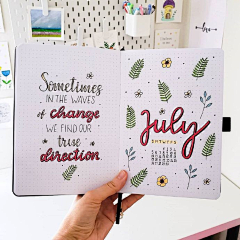 Sometimes
IN THE WAVES
of change
WE FIND OUR
true
direction.
July
S M T W T F S